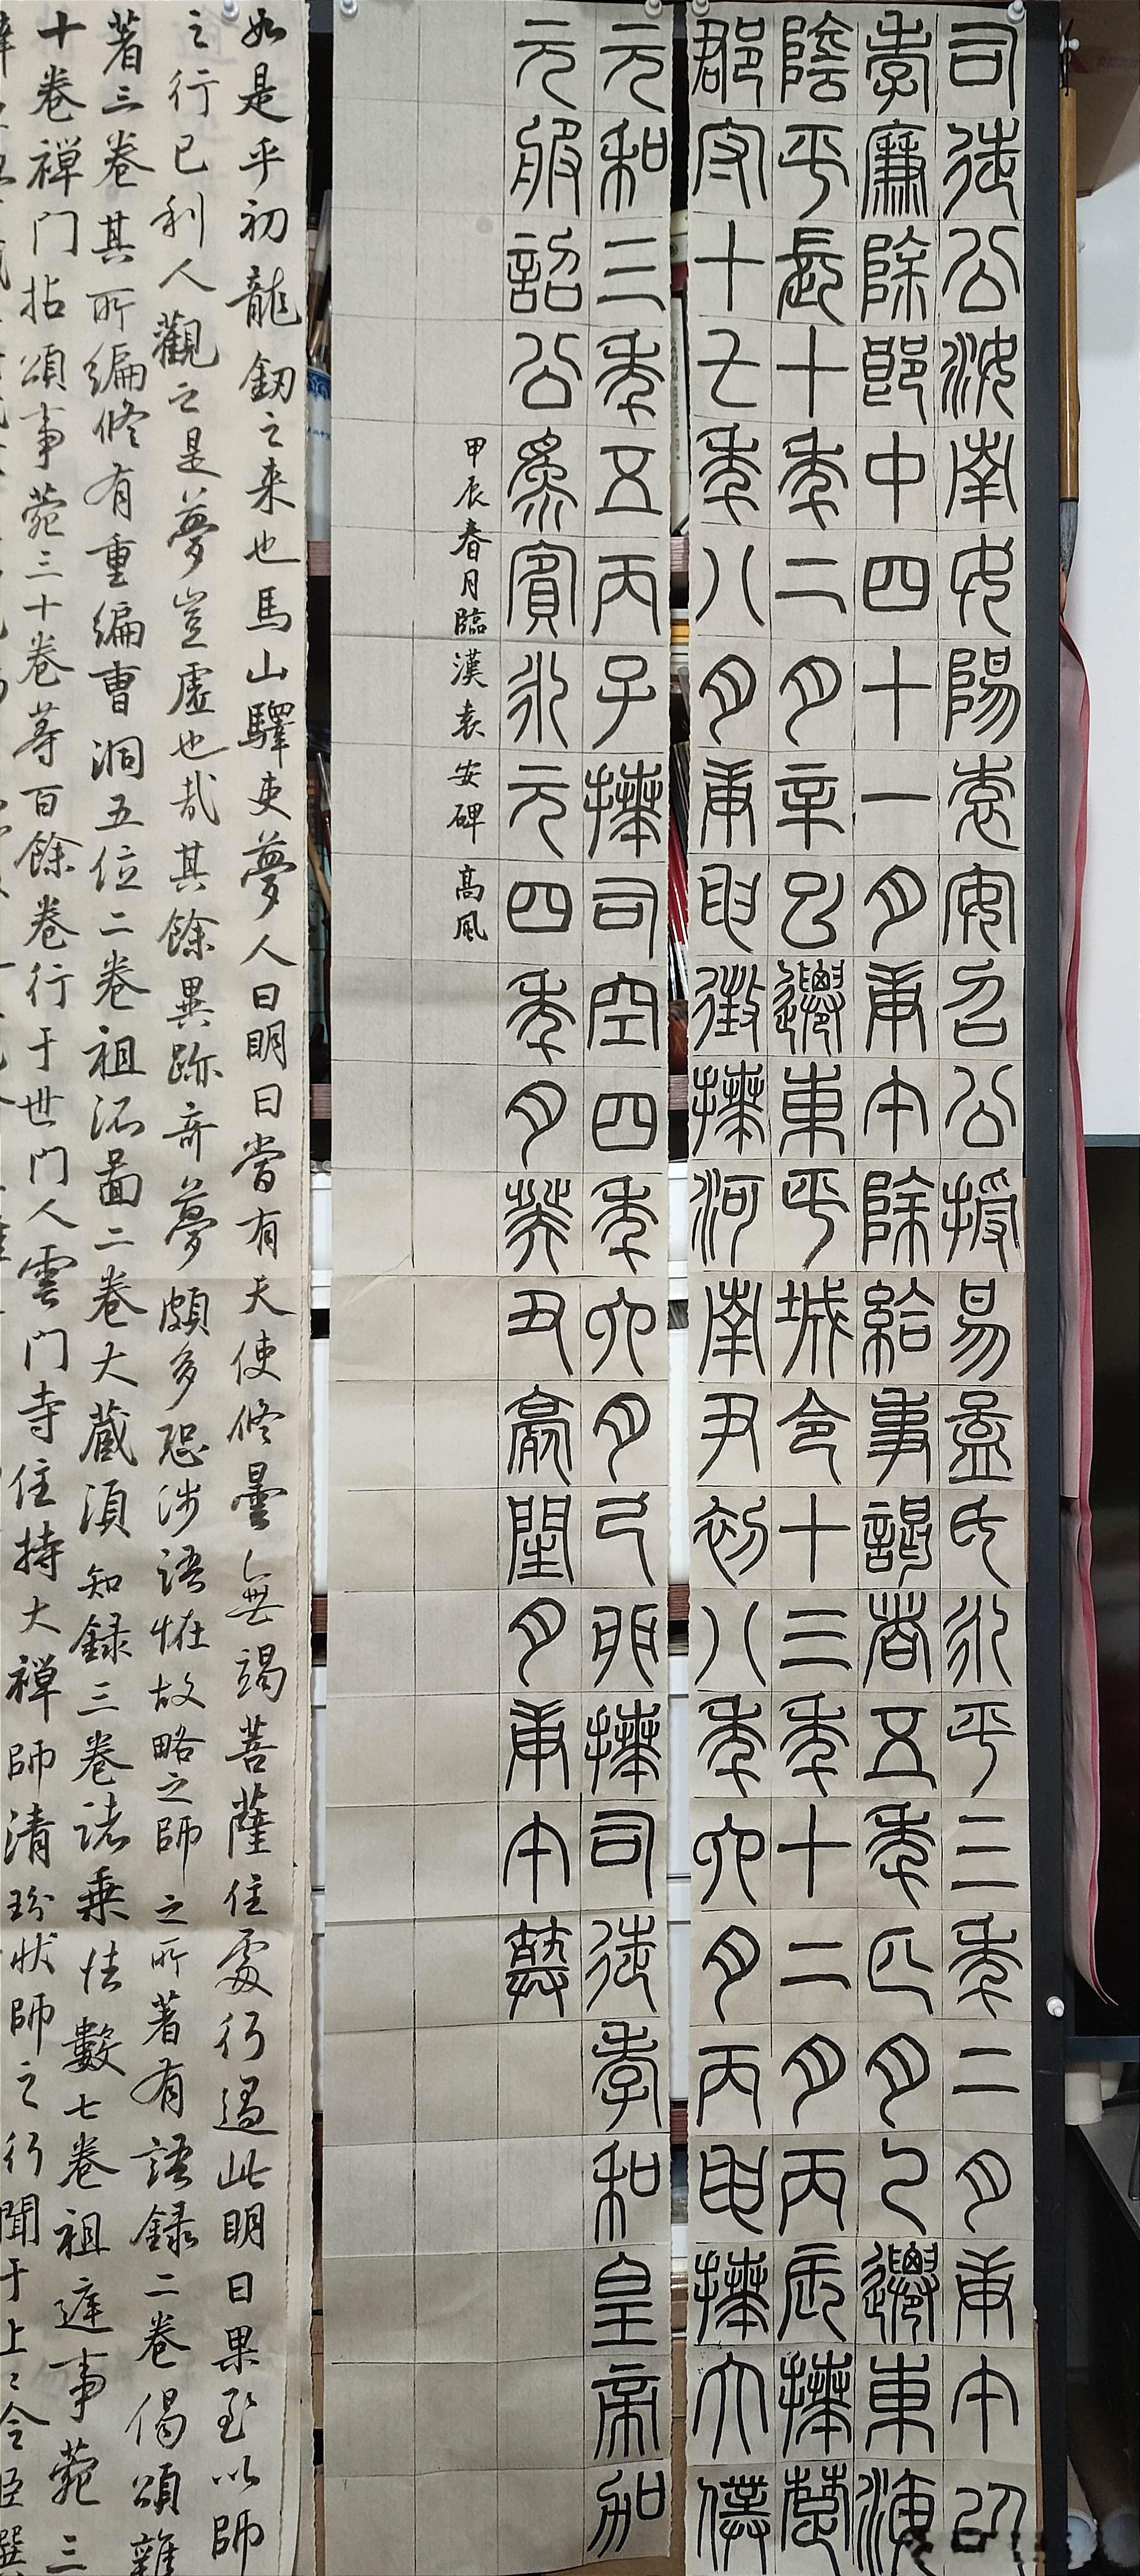 司徒公汝南女陽袁安召公授易孟氏永平三年二月庚午以
孝廉除郎中四十一月庚午除給事謁者五年正月乙遷東海
陰平長十年二月辛巳遷東平城令十三年十二月丙辰拜楚
郡守十七年八月庚申徵拜河南尹初八年六月丙申拜太僕
元和三年五丙子拜司空四年六月己卯拜司徒孝和皇帝加
元服詔公為賓永元四年月癸丑薨閏月庚午葬
甲辰春月臨漢袁安碑 高風
如是乎初龍釰之来也馬山驛吏夢人曰明日當有天使修曇無竭菩薩住處行過此明日果至以師
之行已利人觀之是夢豈虛也哉其餘異跡奇夢頗多恐涉語恠故略之師之所著有語録二卷偈頌雜
著三卷其所編修有重編曹洞五位二卷祖派圖二卷大藏須知録三卷諸乗法數七卷祖庭事菀三
十卷禅门拈頌事菀三十卷等百餘卷行于世门人雲门寺住持大禅師清玢状師之行聞于上々令臣撰